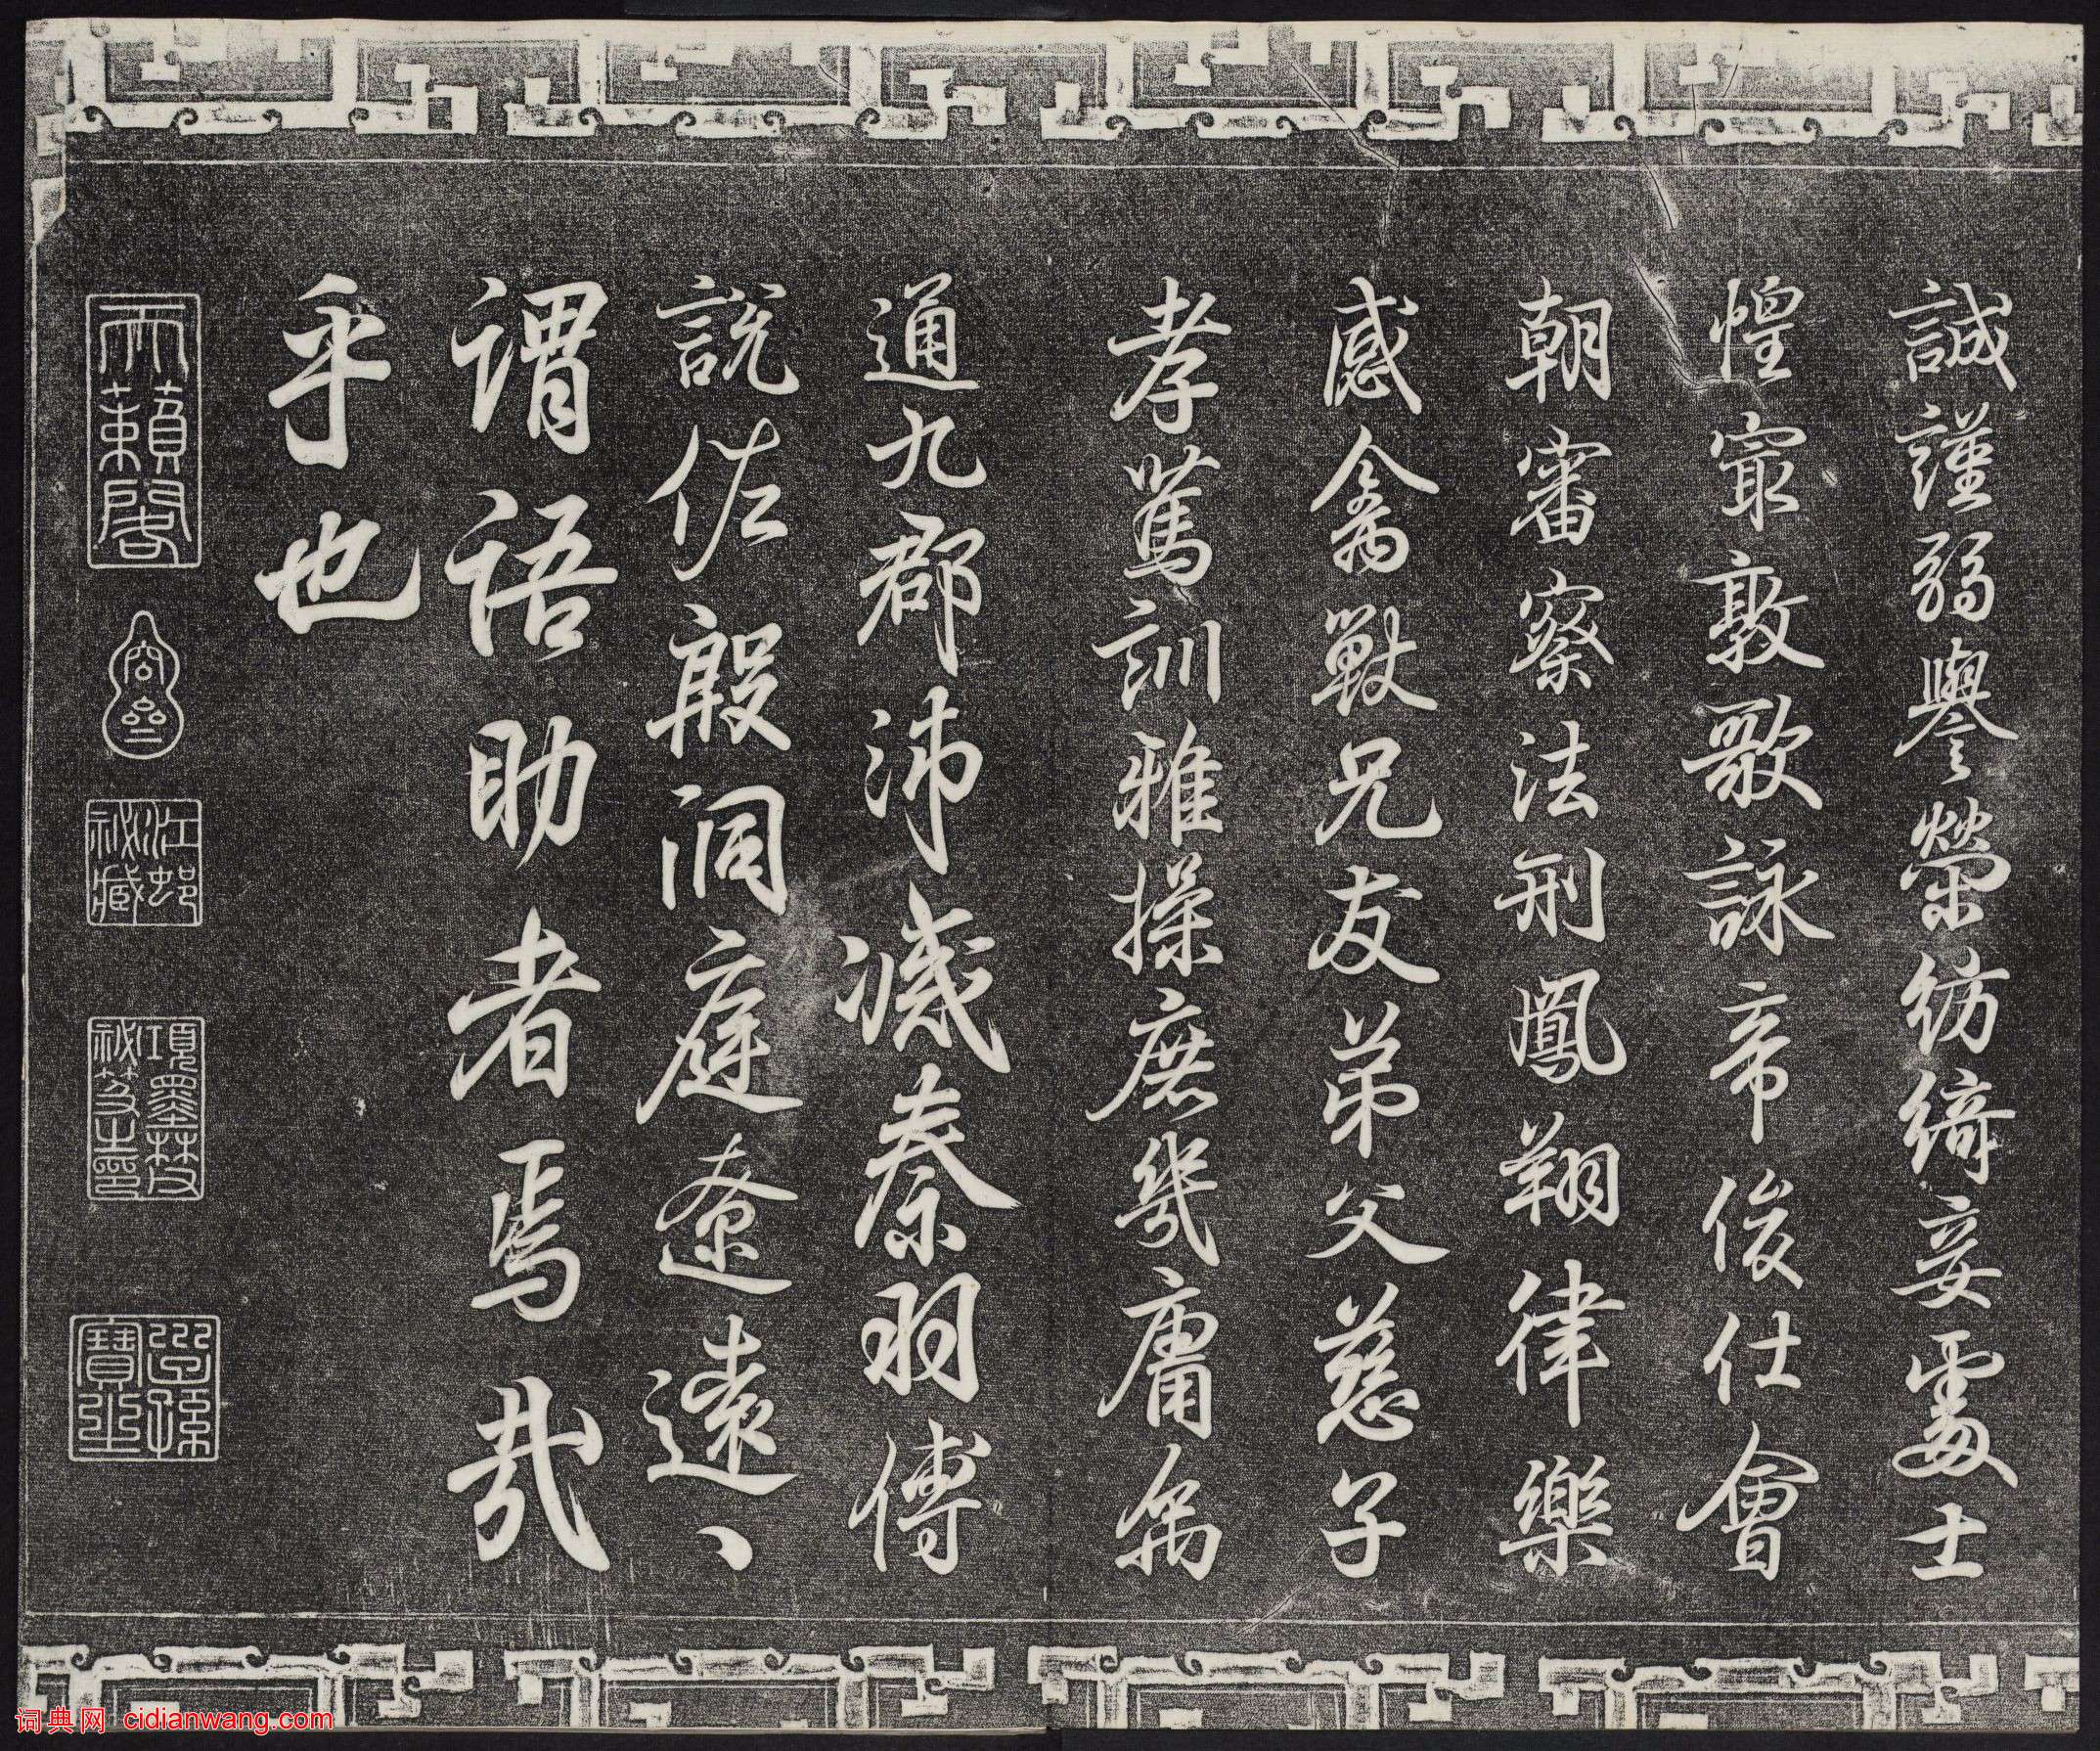 誠謹弱譽榮紡綺妾處士
惶㝡敦歌詠帝俊仕會
朝審察法刑鳳翔律樂
感禽獸兄友弟父慈子
孝篤訓雅操庶幾庸禹
通九郡沛滅秦羽傅
說佐殷洞庭遼遠
謂語助者焉哉
乎也
天籟閣
江邨秘藏
項墨林父秘笈之印
词典网 cidianwang.com